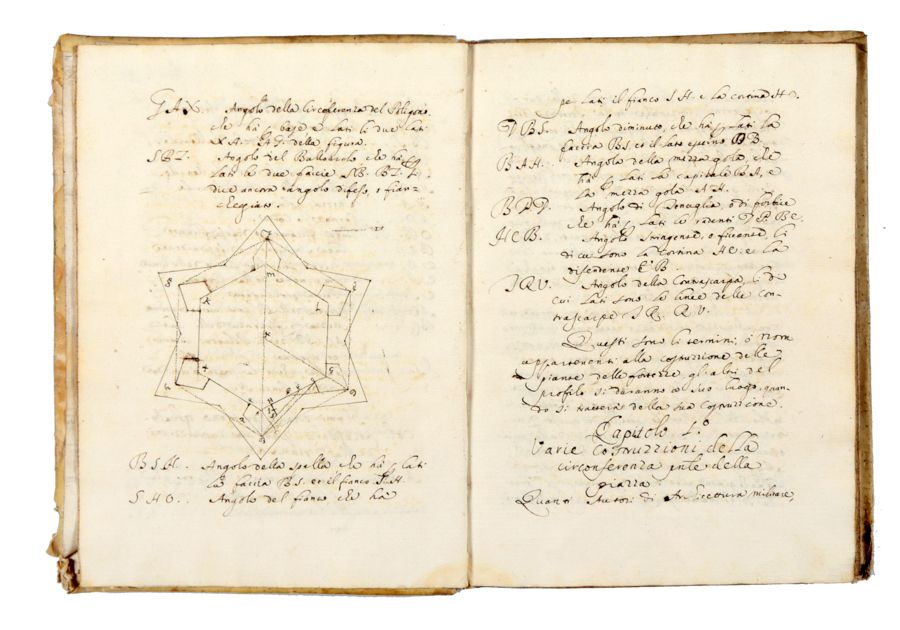 G A X. Angolo della Circonferenza del Poligono,
che há p base e lati le due lati
X A. A G. della figura.
S B L. Angolo del Baluardo che há p
lati le due faccie S B. B L. si
dice ancora Angolo difeso, e fian-
cheggiato.
B S H. Angolo della spalla che há p lati
la faccia B S. et il fianco S. H.
S H O. Angolo del fianco che há
pe lati il fianco S H. e la cortina H O.
D B S. Angolo diminuto, che há p lati la
faccia B S. et il lato esterno D B.
B A H. Angolo della mezza gola, che
há p lati la capitale B A, e
la mezza gola A H.
B D D. Angolo di Tenaglia, ò di forbice
che há p lati le radenti
H C B. Angolo stringente, o ficcante, li
di cui sono la Cortina H C. e la
difendente C B.
J Q V. Angolo della Contrascarpa, li di
cui lati sono la linee delle con-
trascarpe J Q. Q V.
Questi sono li termini, ò nomi
appartenenti alla costruzzione delle
piante delle fortezze gli altri del
profilo si daranno a suo luogo, quan-
do si tratterà della sua Costruzzione.
Capitolo 4.o
Varie Costruzzioni della
circonferenza della
piazza
Quanti Autori di Architettura militare,